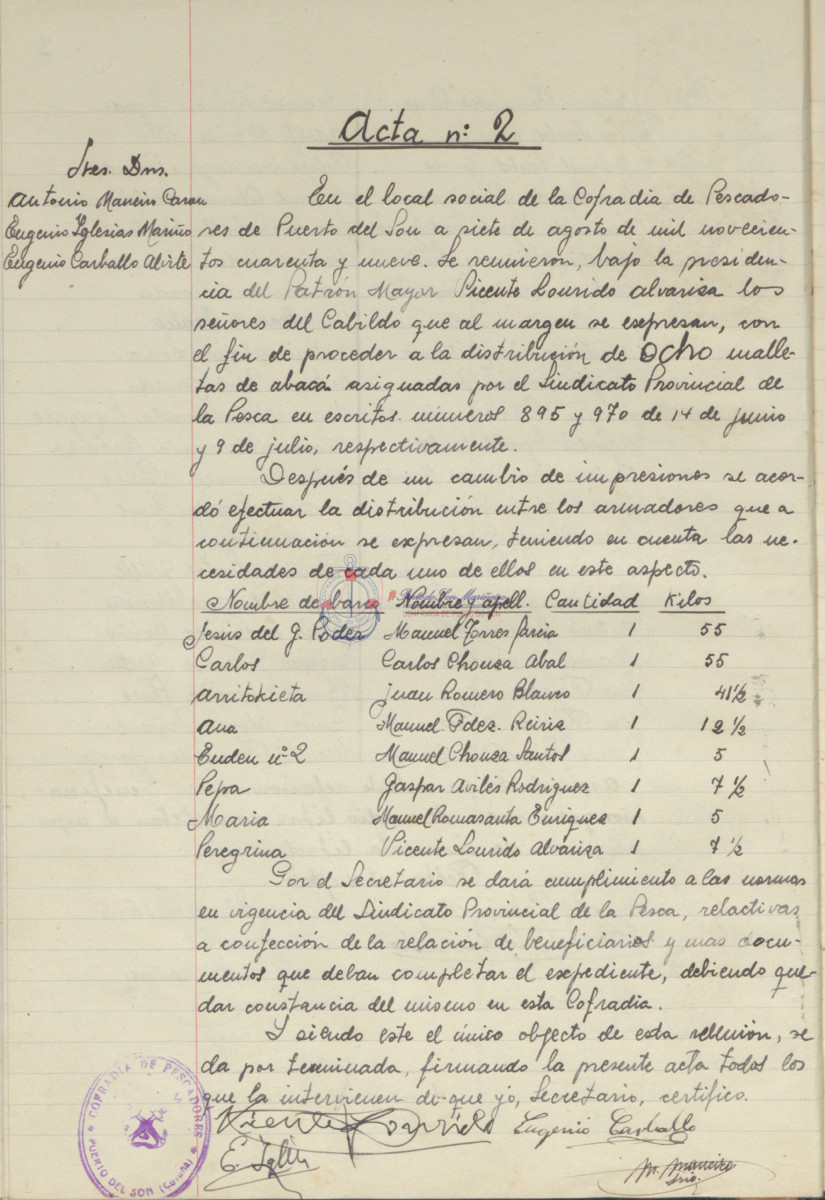 Acta nº 2
Sres. Dns.
Antonio Maneiro
Eugenio Iglesias Mariño
Eugenio Carballo
En el local social de la Cofradia de Pescado-
res de Puerto del Son a siete de agosto de mil novecien-
tos cuarenta y nueve. Se reunieron, bajo la presiden-
cia del Patrón Mayor Vicente Lourido Alvariza los
señores del Cabildo que al margen se expresan, con
el fin de proceder a la distribución de OCHO malle-
tas de abacá asignadas por el Sindicato Provincial de
la Pesca en escritos números 895 y 970 de 14 de junio
y 9 de julio, respectivamente.
Después de un cambio de impresiones se acor-
dó efectuar la distribución entre los armadores que a
continuación se expresan, teniendo en cuenta las ne-
cesidades de cada uno de ellos en este aspecto.
Nombre de barco Nombre y apell. Cantidad Kilos
Jesús del G. Poder Manuel Torres Garcia 1 55
Carlos Carlos Chouza Abal 1 55
Arritokieta Juan Romero Blanco 1 41 1/2
Ana Manuel Fdez. Reiriz 1 12 1/2
Euden nº 2 Manuel Chouza Santos 1 5
Pepa Gaspar Avilés Rodriguez 1 7 1/2
Maria Manuel Romasanta Enriquez 1 5
Peregrina Vicente Lourido Alvariza 1 7 1/2
Por el Secretario se dará cumplimiento a las normas
en vigencia del Sindicato Provincial de la Pesca, relactivas
a confección de la relación de beneficiarios y mas docu-
mentos que deban completar el expediente, debiendo que-
dar constancia del mismo en esta Cofradia.
Y siendo este el único objecto de esta reunión, se
da por terminada, firmando la presente acta todos los
que la intervienen de que yo, Secretario, certifico.
Vicente Lourido Eugenio Carballo
E. Iglesias
M. Maneiro
Srio.
COFRADIA DE PESCADORES
PUERTO DEL SON (Coruña)